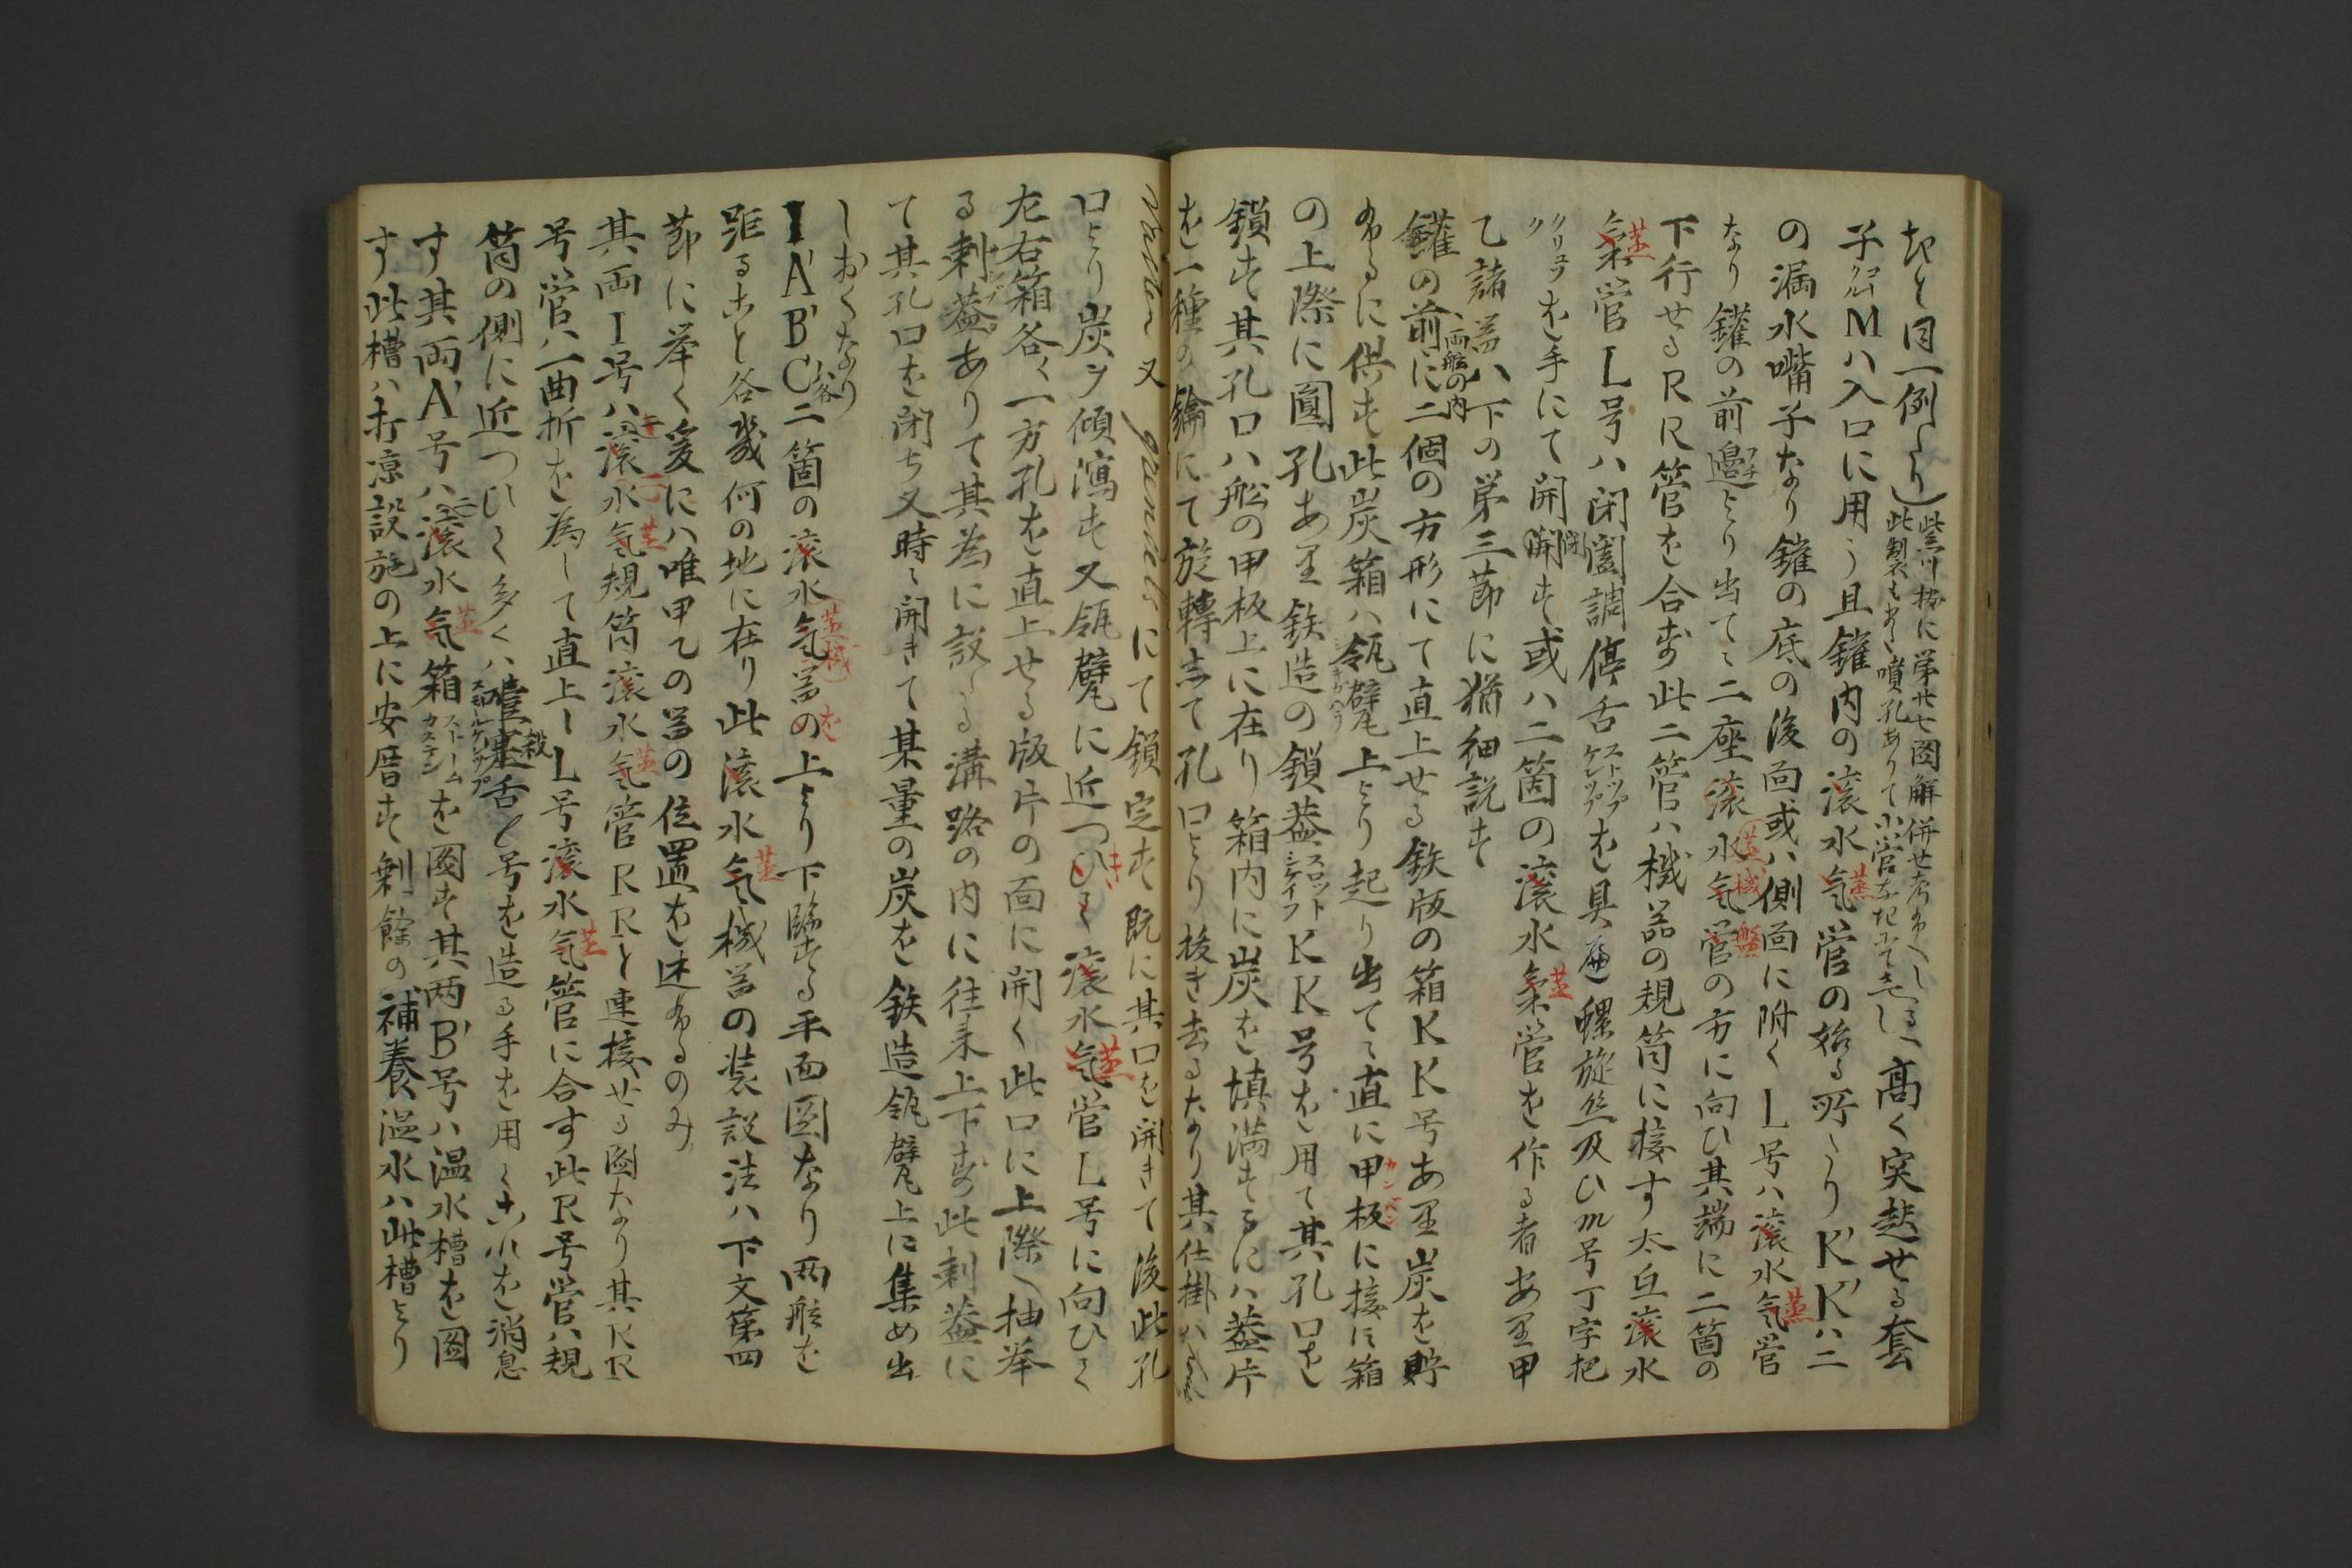 きと同一例なり)此黒川按に第廿七図解併せ考ふへし此製もまた噴孔ありて小管を
る高く突起せる套
子コックルMハ入口に用う且鑵内の滚水気蒸管の始る所なりK'K'ハ二
の漏水嘴子なり鑵の底の後面或ハ側面に附くL号ハ滚水気蒸管
なり鑵の前邉より出て二座滚水気蒸機盤管の方に向ひ其端に二箇の
下行せるRR管を合す此二管ハ機器の規筒に接す太丘滚水
気蒸管L号ハ閉闔調停舌ストップケレップを具ふ螺旋丝及ひm号丁字把
クリュックを手にて開閉す或ハ二箇の滚水気蒸管を作る者あり甲
乙諸器ハ下の第三節に猶細説す
鑵の前両舩の内に二個の方形にて直上せる鉄版の箱KK号あり炭を貯
ふるに供す此炭箱ハ瓴甓上より起り出て直に甲板に接に箱
の上際に圓孔あり鉄造の鎖蓋スロットシケイフKK号を用て其孔口を
鎖す其孔口ハ舩の甲板上に在り箱内に炭を填満するにハ蓋片
を一種の鑰にて旋轉して孔口より抜き去るなり其仕掛ハ
Vaster又gaindelsにて鎖定す既に其口を開きて後此孔
口より炭ヲ傾瀉す又瓴甓に近つひきく滚水気蒸管L号に向ひく
左右箱各く一方孔を直上せる版片の面に開く此口に上際へ抽挙
る剌蓋ありて其為に設くる溝路の内に往来上下す此剌蓋に
て其孔口を閉ち又時々開きて某量の炭を鉄造瓴甓上に集め出
しおくなり
I A' B' C'各二箇の滚水気蒸機器をの上より下瞰する平面図なり両舩を
距ること各幾何の地に在り此滚水気蒸機器の装設法ハ下文第四
節に挙く爰にハ唯甲乙の器の位置を述ふるのみ
其両I号ハ滚水気蒸規筒滚水気蒸管RRと連接せる図なり其RR
号管ハ一曲折を為して直上しL号滚水気蒸管に合す此R号管ハ規
筒の側に近つひく多くハ噎塞舌スモールケレップl号を造る手を用くこれを消息
す其両A'号ハ滚水気蒸箱ストームカステンを図す其两B'号ハ温水槽を図
す此槽ハ打凉設施の上に安厝す剰餘の補養温水ハ此槽より